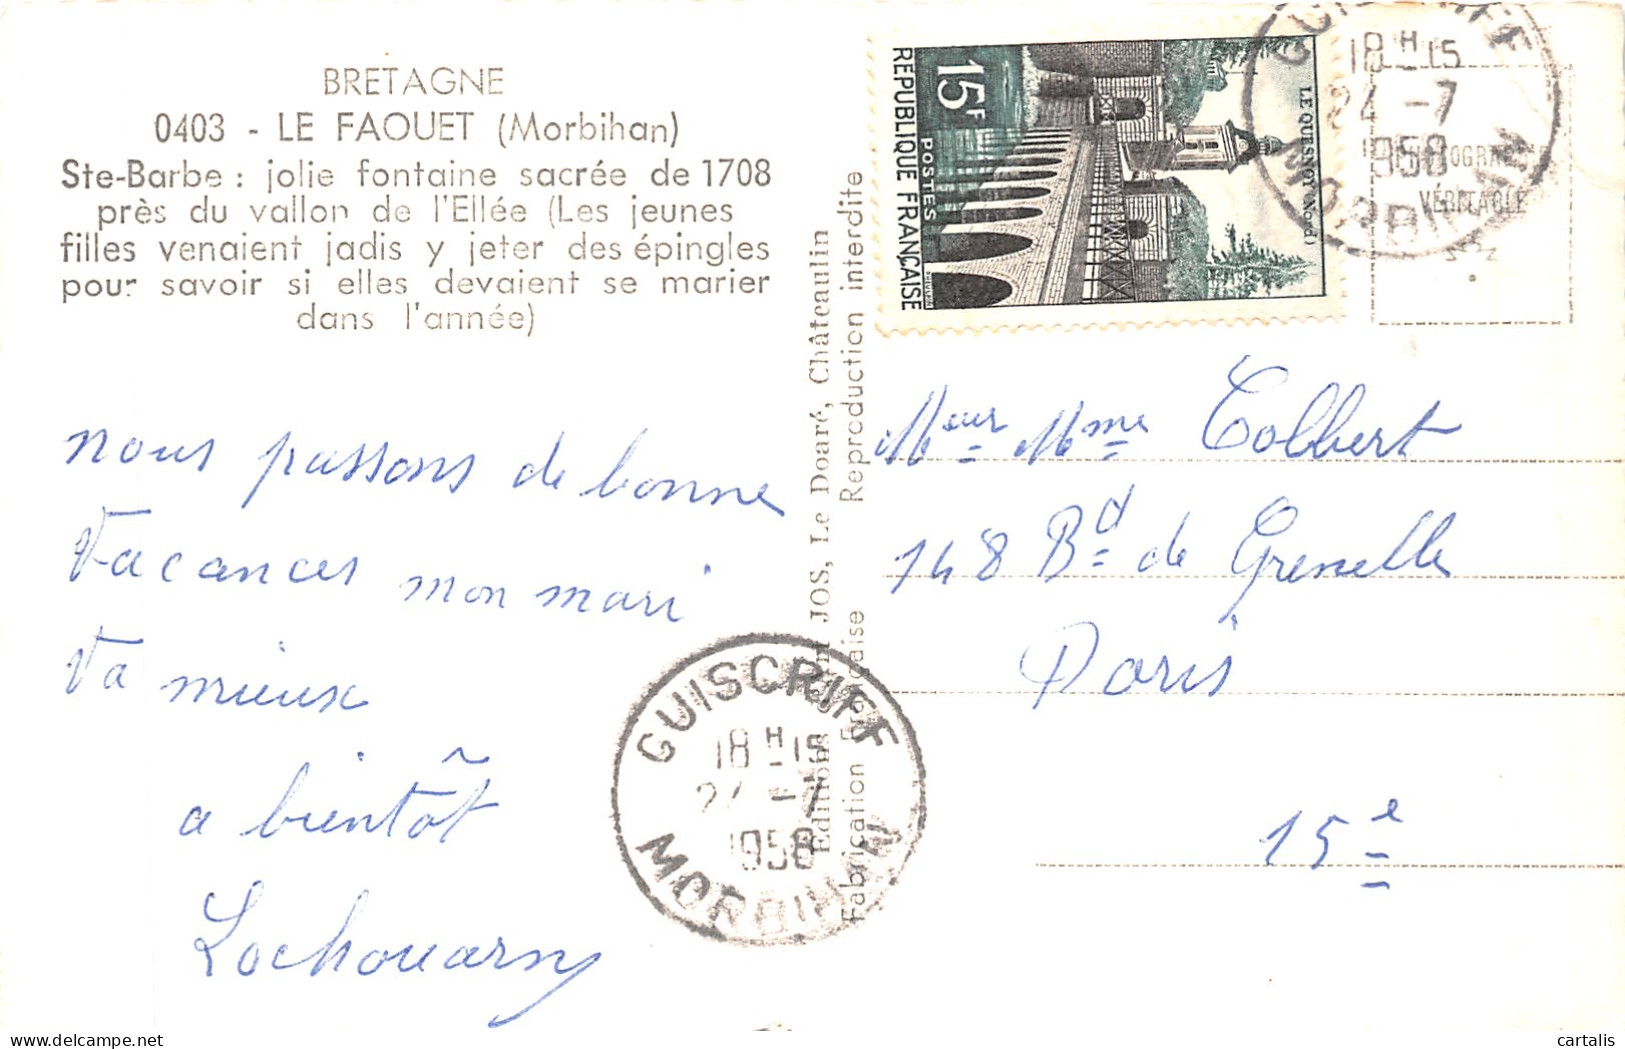 BRETAGNE
0403 - LE FAOUET (Morbihan)
Ste-Barbe : jolie fontaine sacrée de 1708
près du vallon de l'Ellée (Les jeunes
filles venaient jadis y jeter des épingles
pour savoir si elles devaient se marier
dans l'année)
nous passons de bonne
vacances mon mari
va mieux
a bientôt
GUISCRIFF
18 H 15
24 -7
1958
MORBIHAN
JOS, Le Doaré, Châteaulin
Reproduction interdite
Editions
Fabrication
15F
POSTES
REPUBLIQUE FRANÇAISE
LE QUESNOY (Nord)
18 H 15
24 -7
1958
MORBIHAN
VÉRITABLE
Meur Mme Colbert
148 Bd de Grenelle
Paris
15e
cartalis